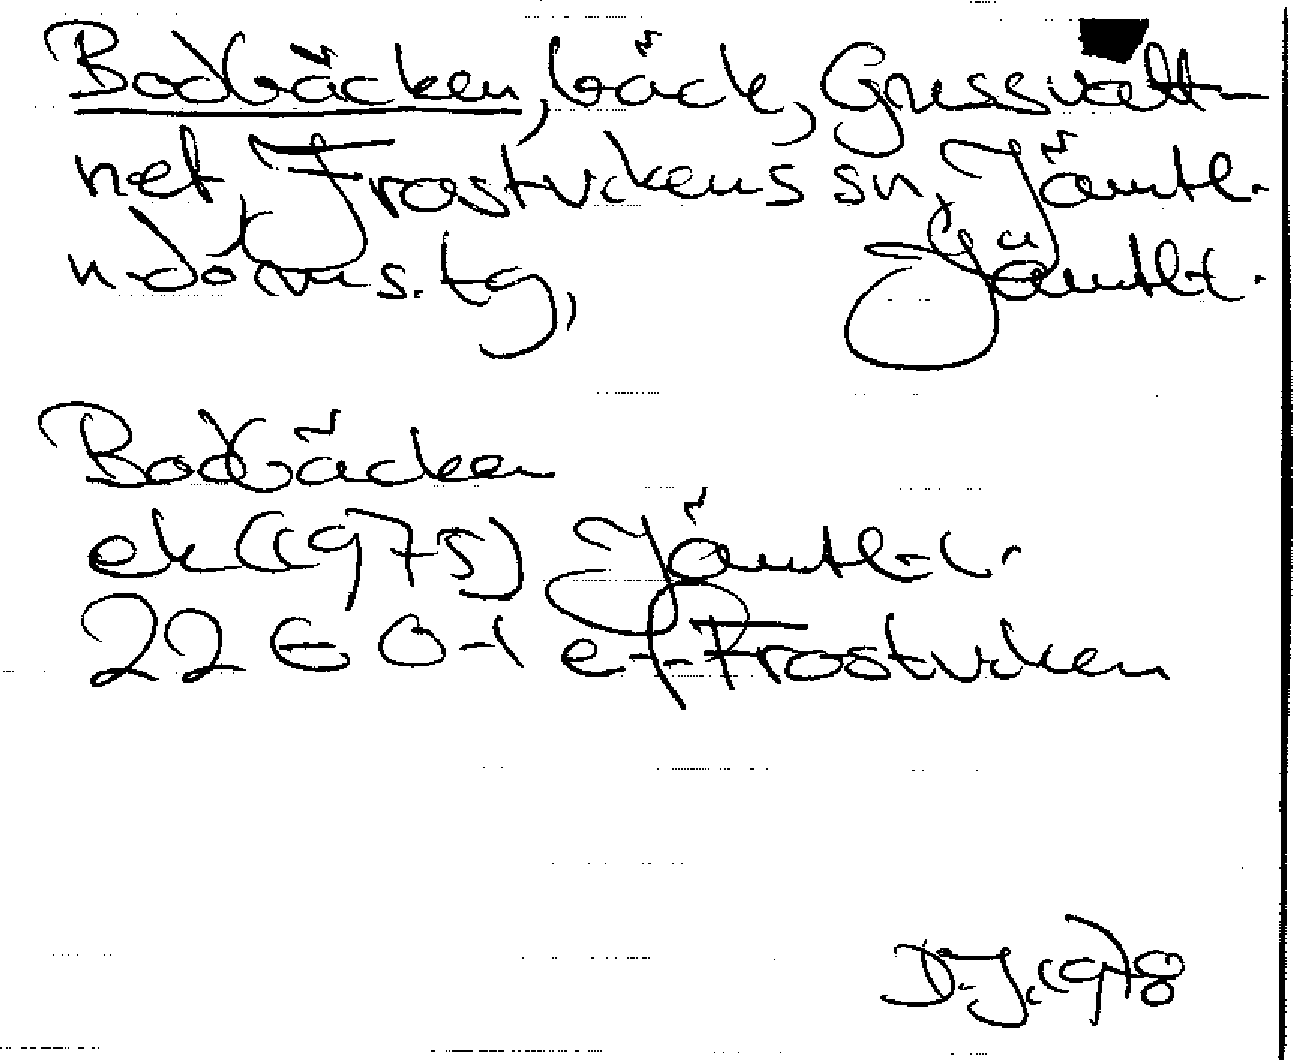 Bodbäcken, bäck, Gussvatt-
net, Frostvikens sn, Jämtl.
n. doms. tg, Jämtl. l.
Bodbäcken
ek (1975) Jämtl. l.
22 E 0-1 e-f Frostviken
D. J. 1978